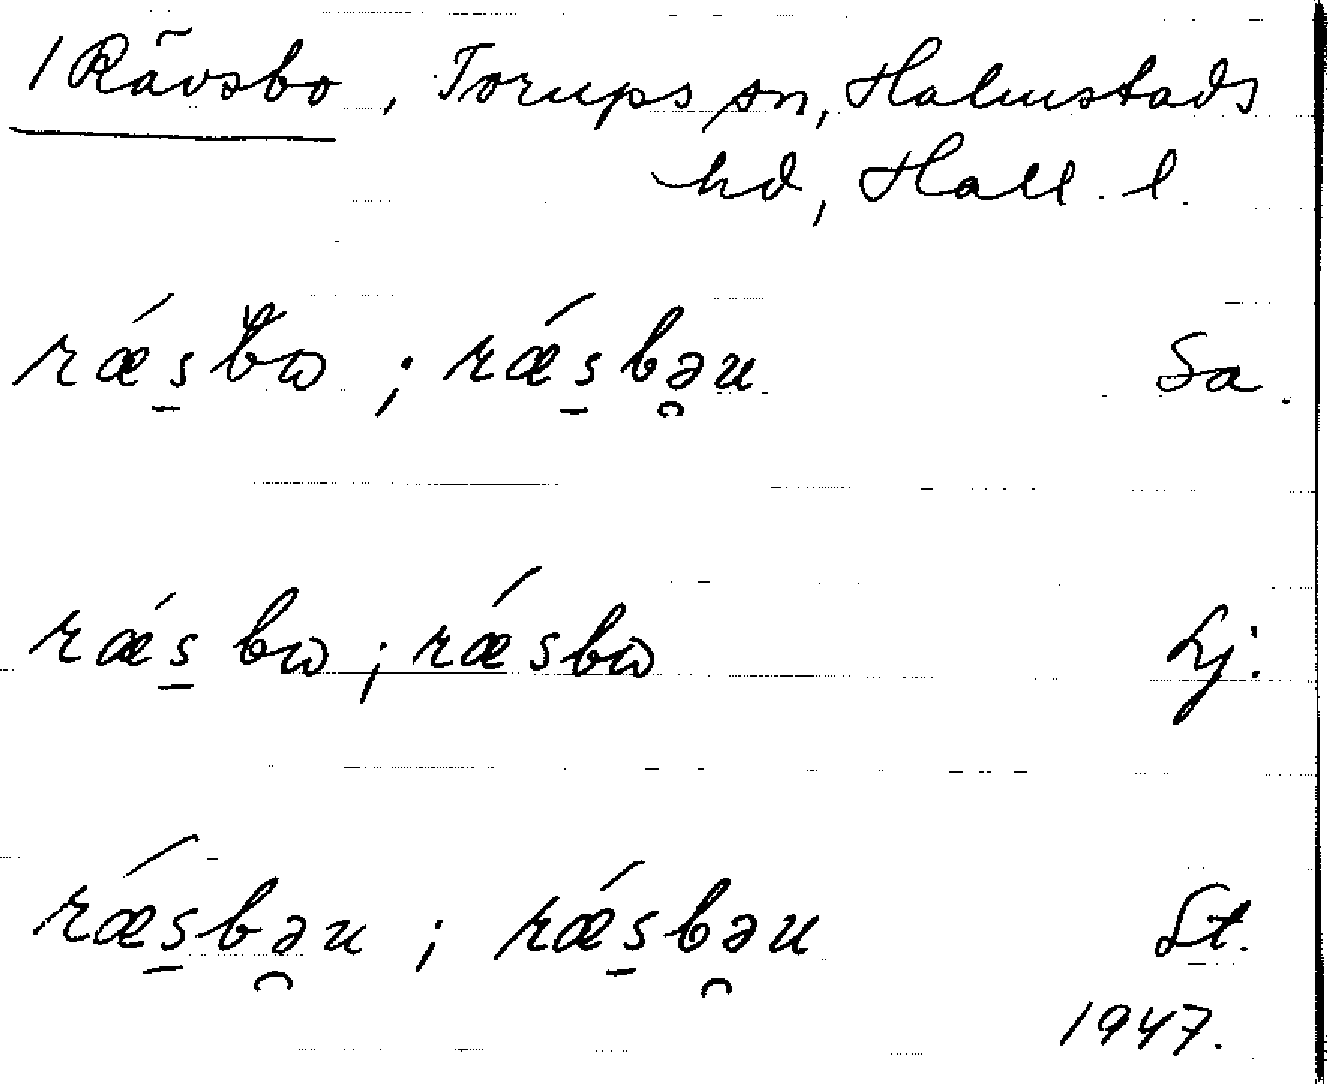 / Rävsbo, Torups sn, Halmstads
hd, Hall. l.
rǽs̠bɷ ; rǽs̠bə̯u Sa.
rǽs̠ bɷ ; rǽsbɷ Lj.
rǽs̠bə̯u ; rǽs̠bə̯u St.
1947.